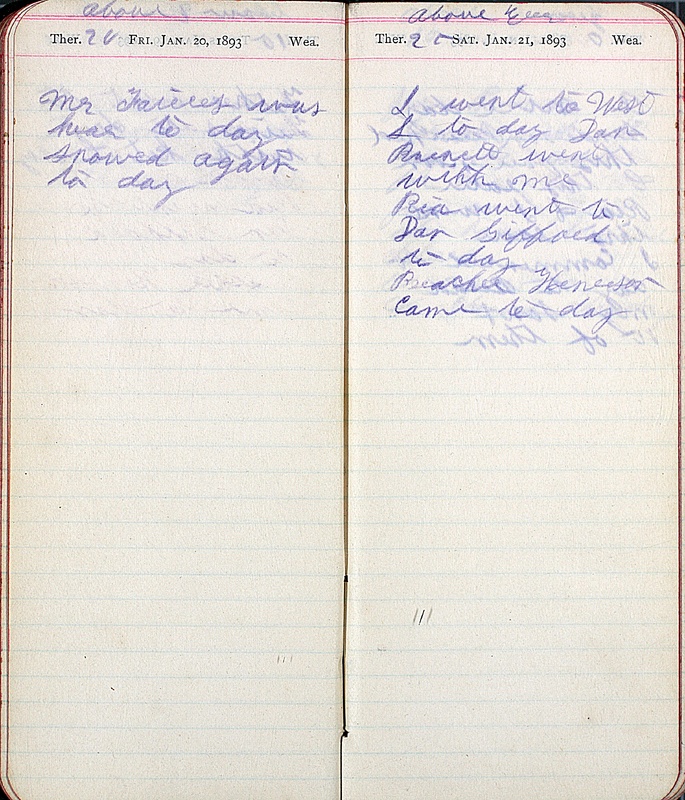 above
Ther. 20 FRI. JAN. 20, 1893 Wea.
Mr was
hear to day
Snowed again
to day
above
Ther. 2 SAT. JAN. 21, 1893 Wea.
I went to West
L to day Dan
Barnett went
with me
Ria went to
Dan Gifford
to day
Preacher
Came to day